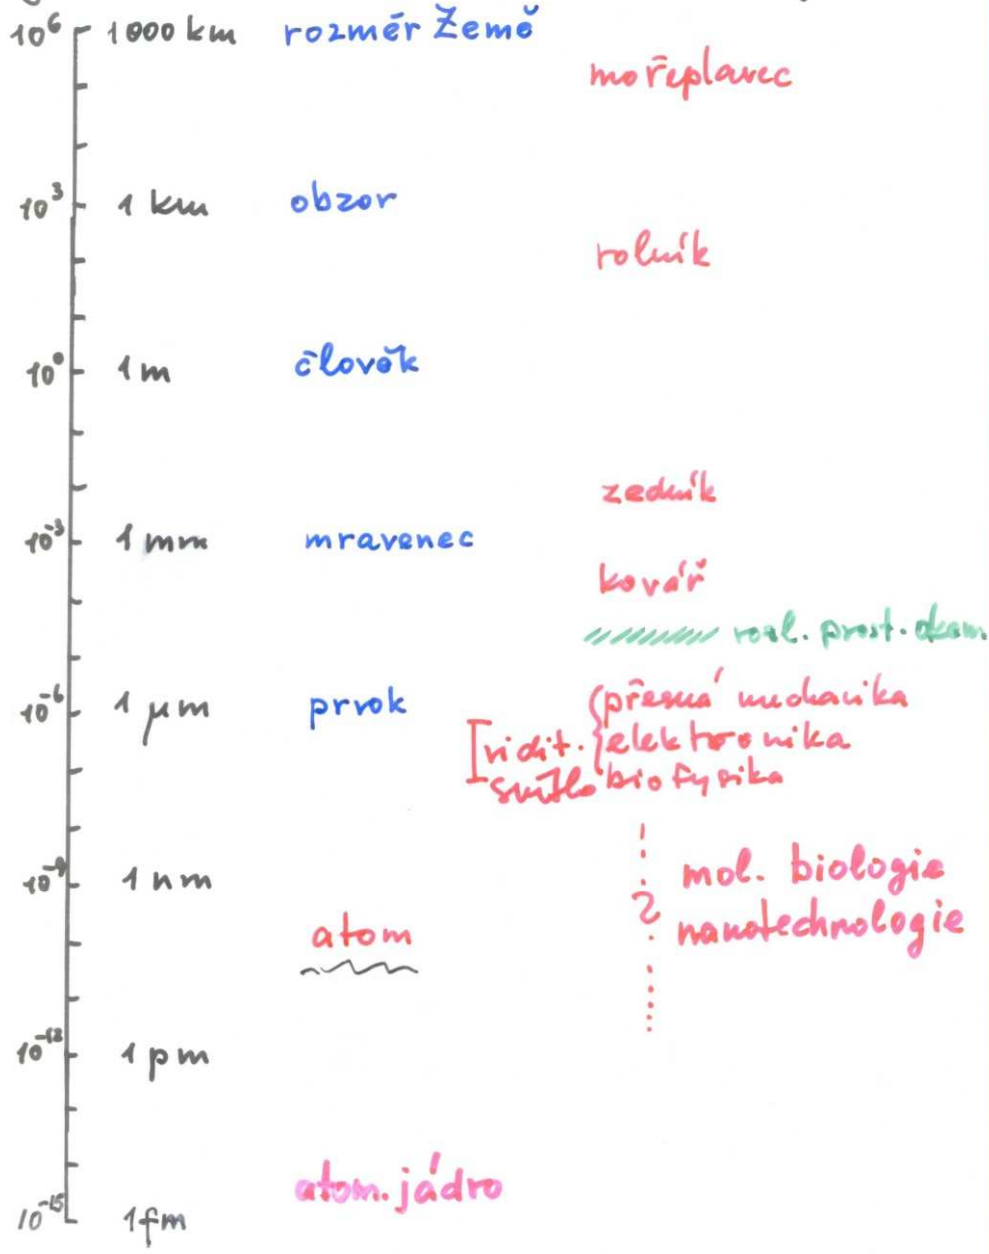 10⁶ 1000 km rozměr Země
mořeplavec
10³ 1 km obzor
rolník
10⁰ 1 m člověk
zedník
10⁻³ 1 mm mravenec
kovář
rozl. prost. okem
10⁻⁶ 1 μm prvok
přesná mechanika
vidit. elektronika
světlo biofysika
10⁻⁹ 1 nm
mol. biologie
?
nanotechnologie
atom
10⁻¹² 1 pm
atom. jádro
10⁻¹⁵ 1 fm